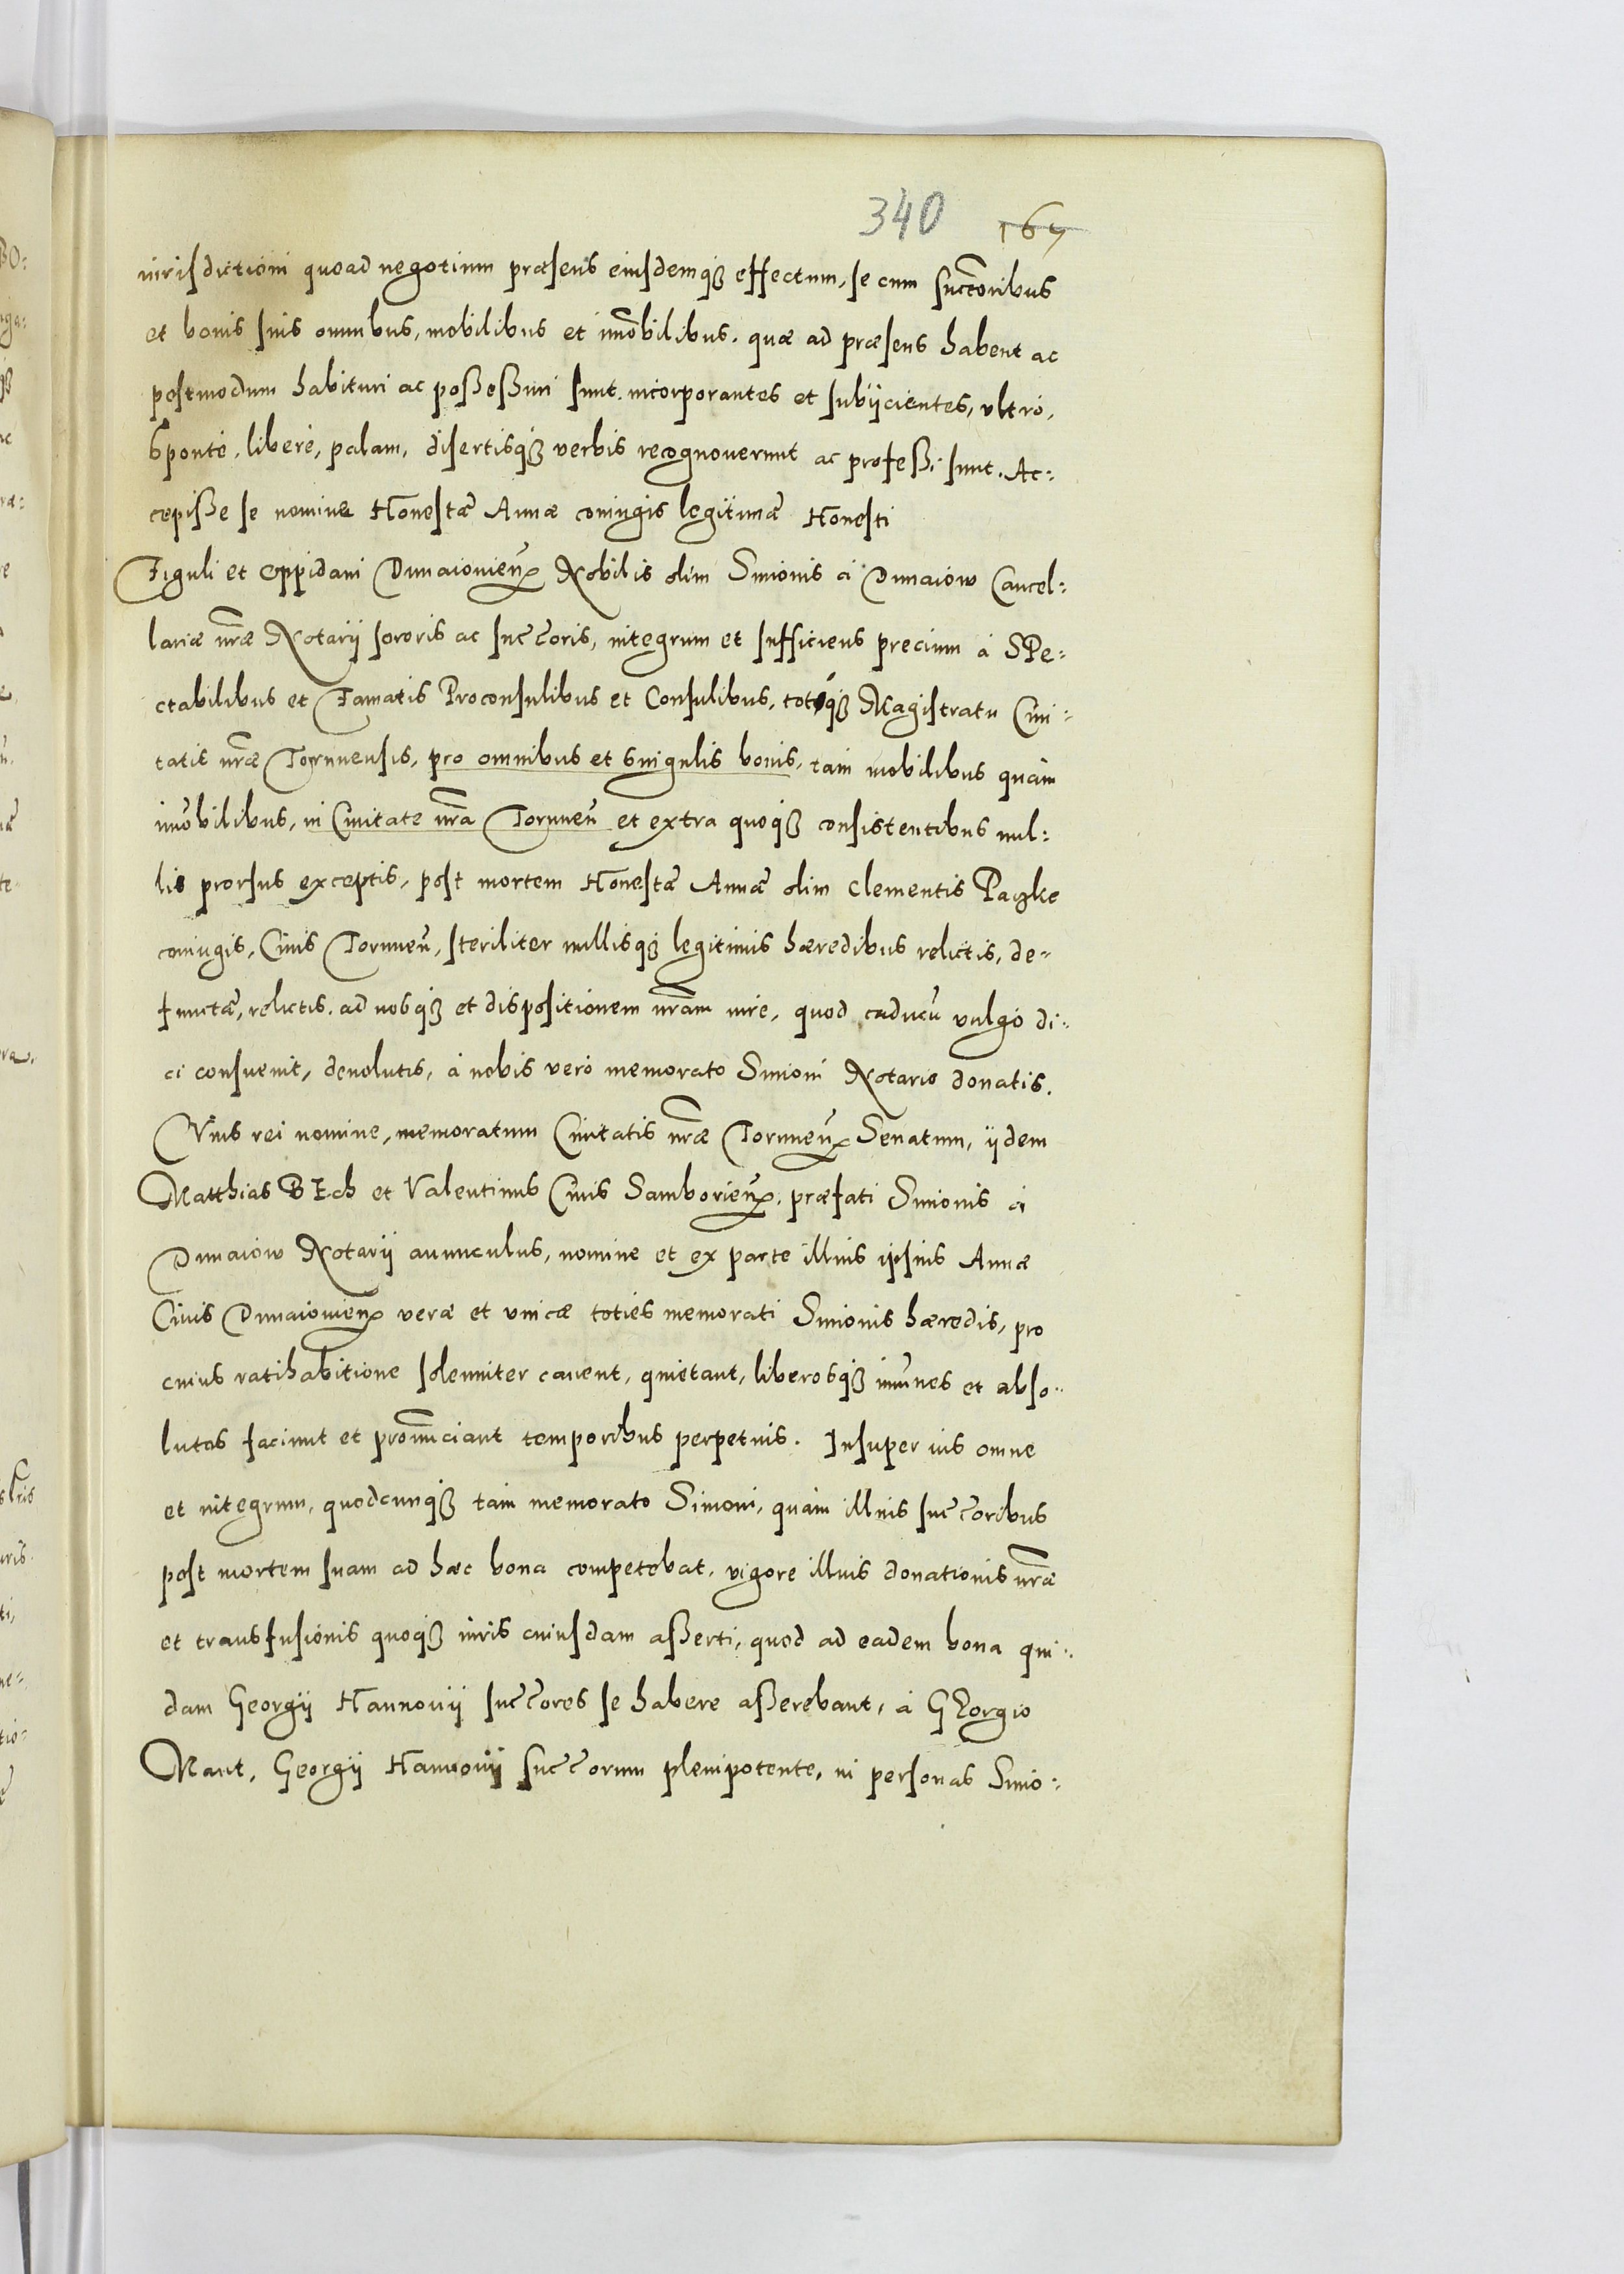 340 167
iurisdictioni quoad negotium præsens eiusdemq3 effectum, se cum succ̃oribus
et bonis suis omnibus, mobilibus et im̃obilibus. quæ ad præsens habent ac
postmodum habituri ac possessuri sunt. incorporantes et subijcientes, vltro,
Sponte, libere, palam, disertisq3 verbis recognouerunt ac professi sunt. Ac:
cepisse se nomine Honestæ Annæ coniugis legitimæ Honesti
Figuli et oppidani Dunaiouien̄ Nobilis olim Simonis à Dunaiow Cancel:
lariæ nr̃æ Notarij sororis ac succ̃oris, integrum et sufficiens precium à SPe:
ctabilibus et Famatis Proconsulibus et Consulibus, totoq́3 Magistratu Ciui:
tatis nr̃æ Torunensis, pro omnibus et singulis bonis, tam mobilibus quàm
im̃obilibus, in Ciuitate nr̃a Torunen̄ et extra quoq3 consistentibus nul:
lis prorsus exceptis, post mortem Honestæ Annæ olim Clementis Paczke
coniugis, Ciuis Torunen̄, steriliter nullisq3 legitimis hæredibus relictis, de:
functæ, relictis. ad nosq3 et dispositionem nr̃am iure, quod caducũ vulgò di:
ci consueuit, deuolutis, à nobis verò memorato Simoni Notario donatis.
Cuius rei nomine, memoratum Ciuitatis nr̃æ Torunen̄ Senatum, ijdem
Matthias BEch et Valentinus Ciuis Samborien̄, præfati Simonis à
Dunaiow Notarij auunculus, nomine et ex parte illius ipsius Annæ
Ciuis Dunaiouien̄ veræ et vnicæ toties memorati Simonis hæredis, pro
cuius ratihabitione solenniter cauent, quietant, liberosq3 im̃unes et abso:
lutos faciunt et pronũciant temporibus perpetuis. Insuper ius omne
et integrum, quodcunq3 tam memorato Simoni, quàm illius succ̃oribus
post mortem suam ad hæc bona competebat, vigore illius donationis nr̃æ
et transfusionis quoq3 iuris cuiusdam asserti, quod ad eadem bona qui:
dam Georgij Hannouij succ̃ores se habere asserebant, à GEorgio
Mant, Georgij Hannouij succ̃orum plenipotente, in personas Simo: